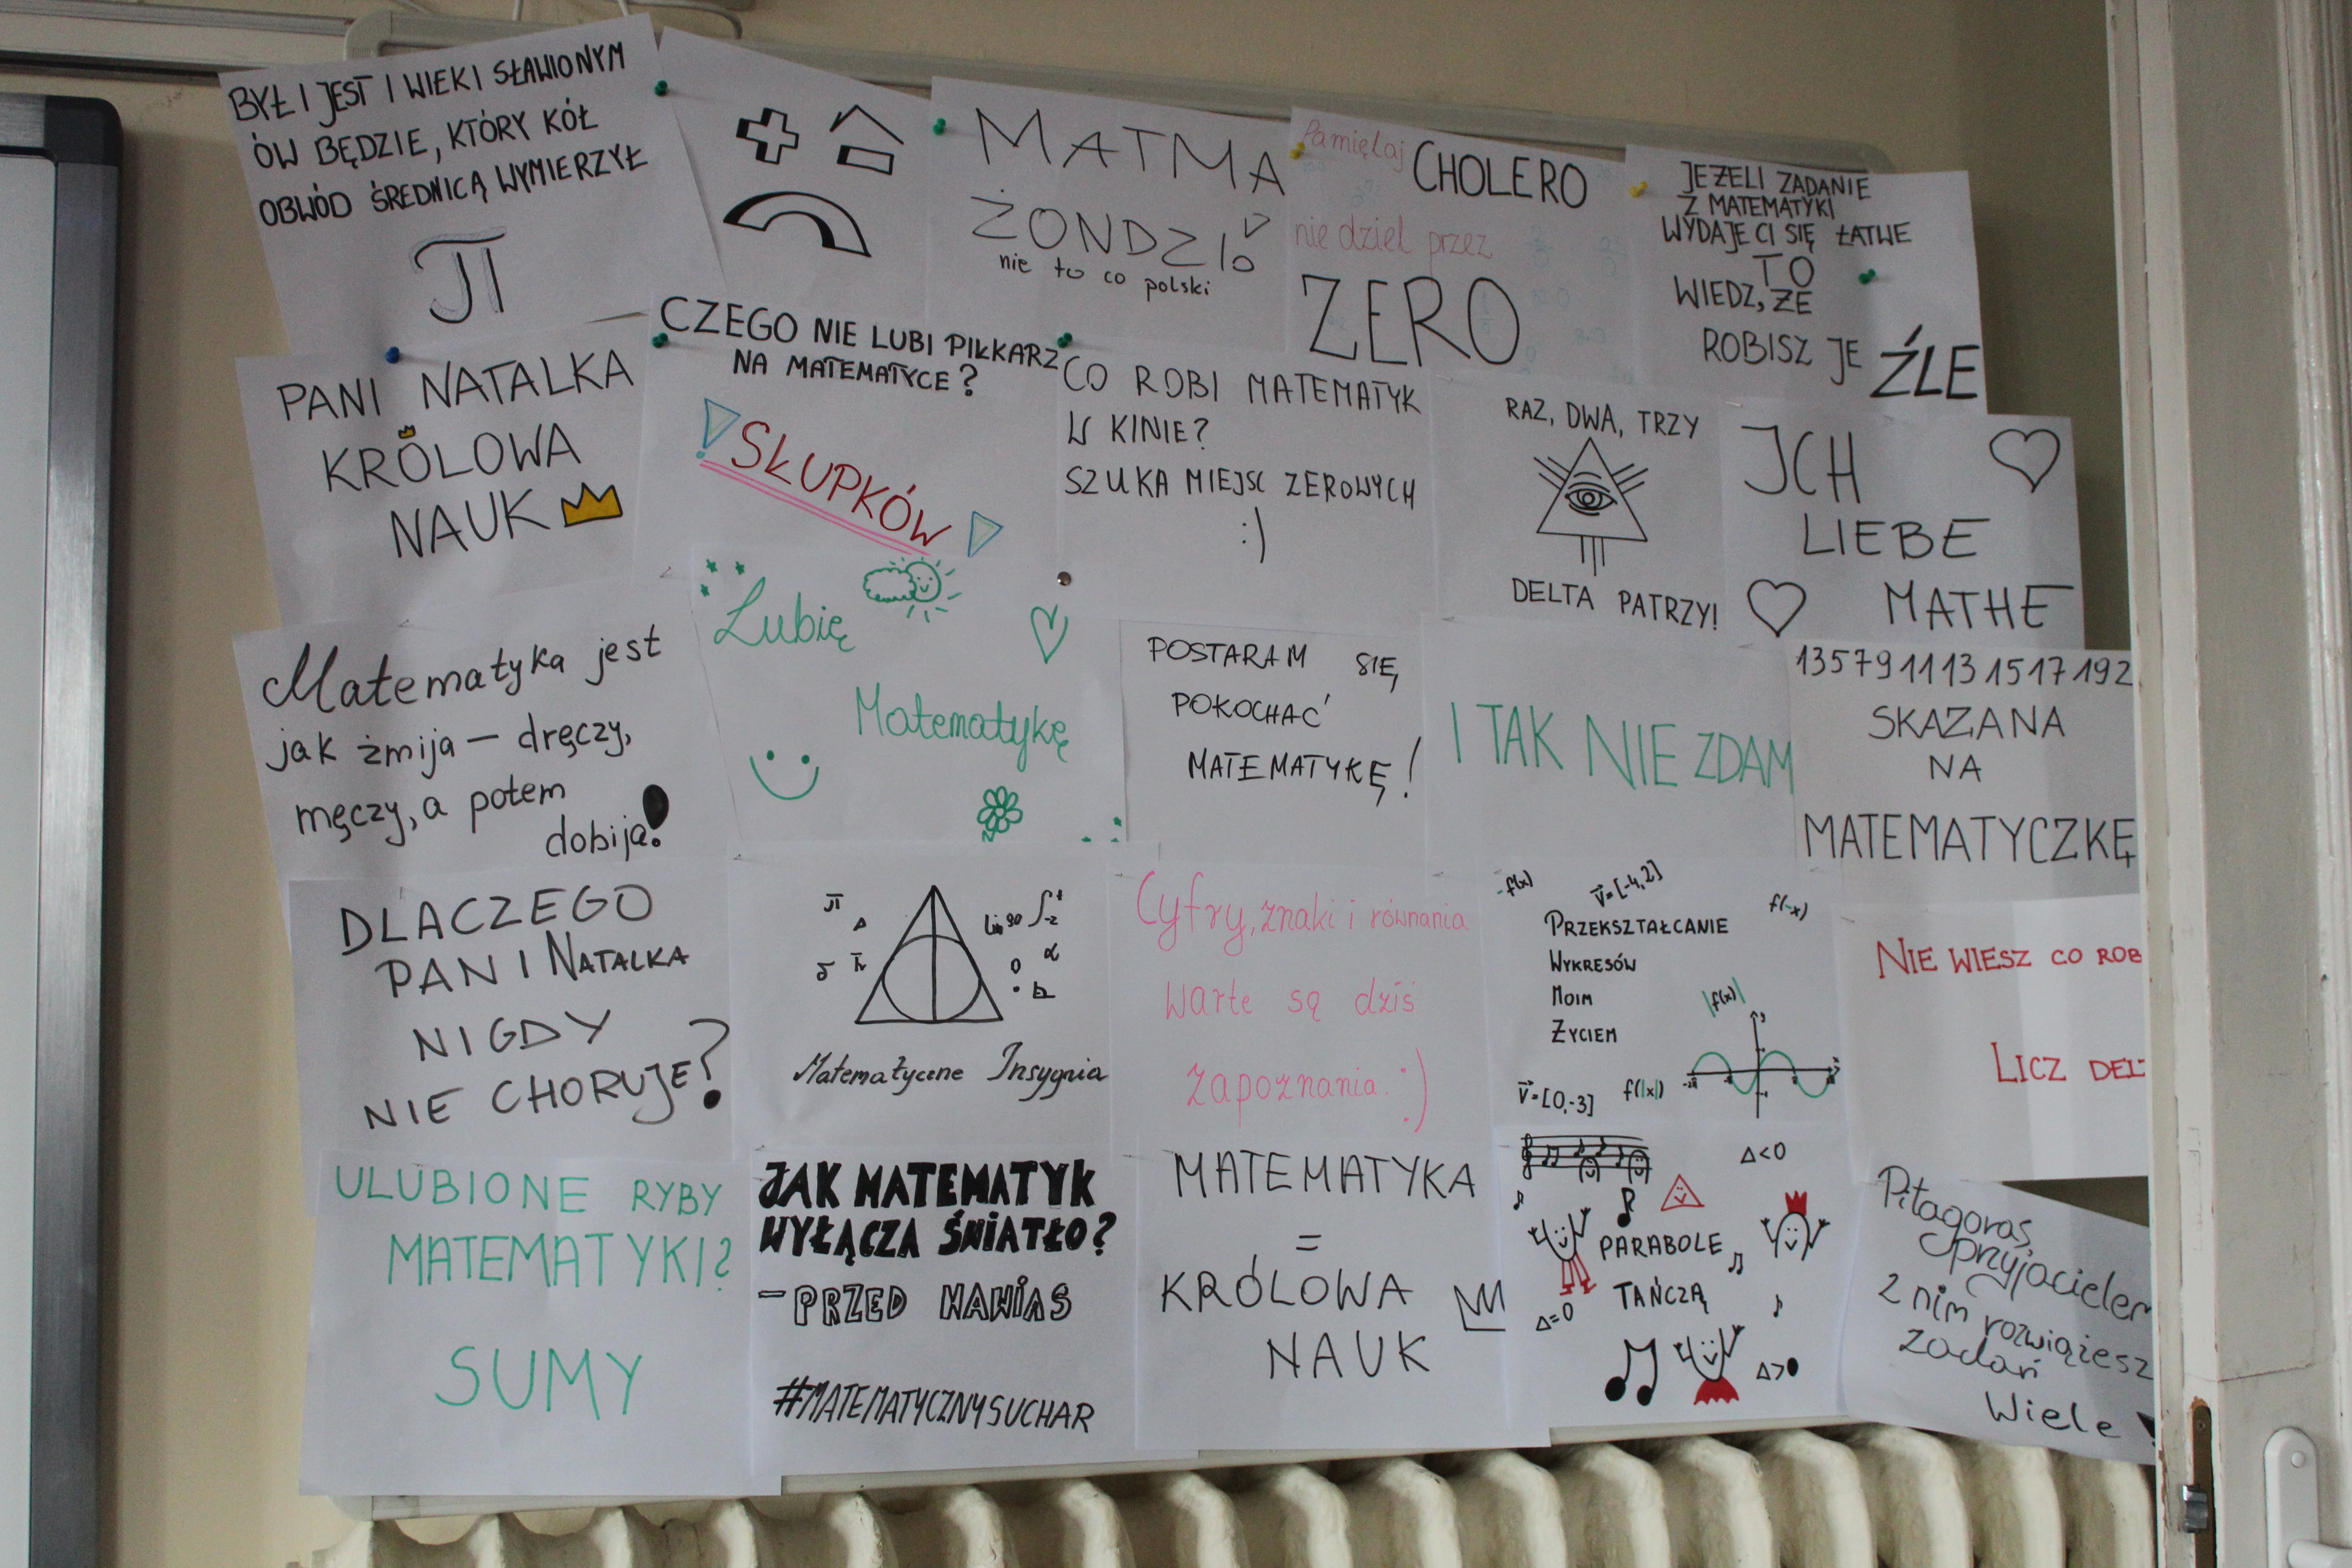 BYŁ I JEST I WIEKI SŁAWIONYM
ÓW BĘDZIE, KTÓRY KÓŁ
OBWÓD ŚREDNICĄ WYMIERZYŁ
π
MATMA
ŻONDZI
nie to co polski
Pamiętaj CHOLERO
nie dziel przez
ZERO
JEŻELI ZADANIE
Z MATEMATYKI
WYDAJE CI SIĘ ŁATWE
TO
WIEDZ, ŻE
ROBISZ JE ŹLE
PANI NATALKA
KRÓLOWA
NAUK
CZEGO NIE LUBI PIŁKARZ
NA MATEMATYCE?
SŁUPKÓW
CO ROBI MATEMATYK
W KINIE?
SZUKA MIEJSC ZEROWYCH
:)
RAZ, DWA, TRZY
DELTA PATRZY!
ICH
LIEBE
MATHE
Matematyka jest
jak żmija – dręczy,
męczy, a potem
dobija!
Lubię
Matematykę
POSTARAM SIĘ,
POKOCHAĆ
MATEMATYKĘ!
I TAK NIE ZDAM
135791113151719 2
SKAZANA
NA
MATEMATYCZKĘ
DLACZEGO
PANI NATALKA
NIGDY
NIE CHORUJE?
π
Δ
α
Matematyczne Insygnia
Cyfry, znaki i równania
warte są dziś
zapoznania. :)
-f(x)
v=[-4,2]
f(-x)
PRZEKSZTAŁCANIE
WYKRESÓW
MOIM
ŻYCIEM
|f(x)|
v=[0,-3]
f(|x|)
NIE WIESZ CO ROB
LICZ DEL
ULUBIONE RYBY
MATEMATYKI?
SUMY
JAK MATEMATYK
WYŁĄCZA ŚWIATŁO?
-PRZED NAWIAS
#MATEMATYCZNYSUCHAR
MATEMATYKA
=
KRÓLOWA
NAUK
Δ<0
PARABOLE
TAŃCZĄ
Δ=0
Δ>0
Pitagoras,
przyjacielem
z nim rozwiążesz
zadań
Wiele!